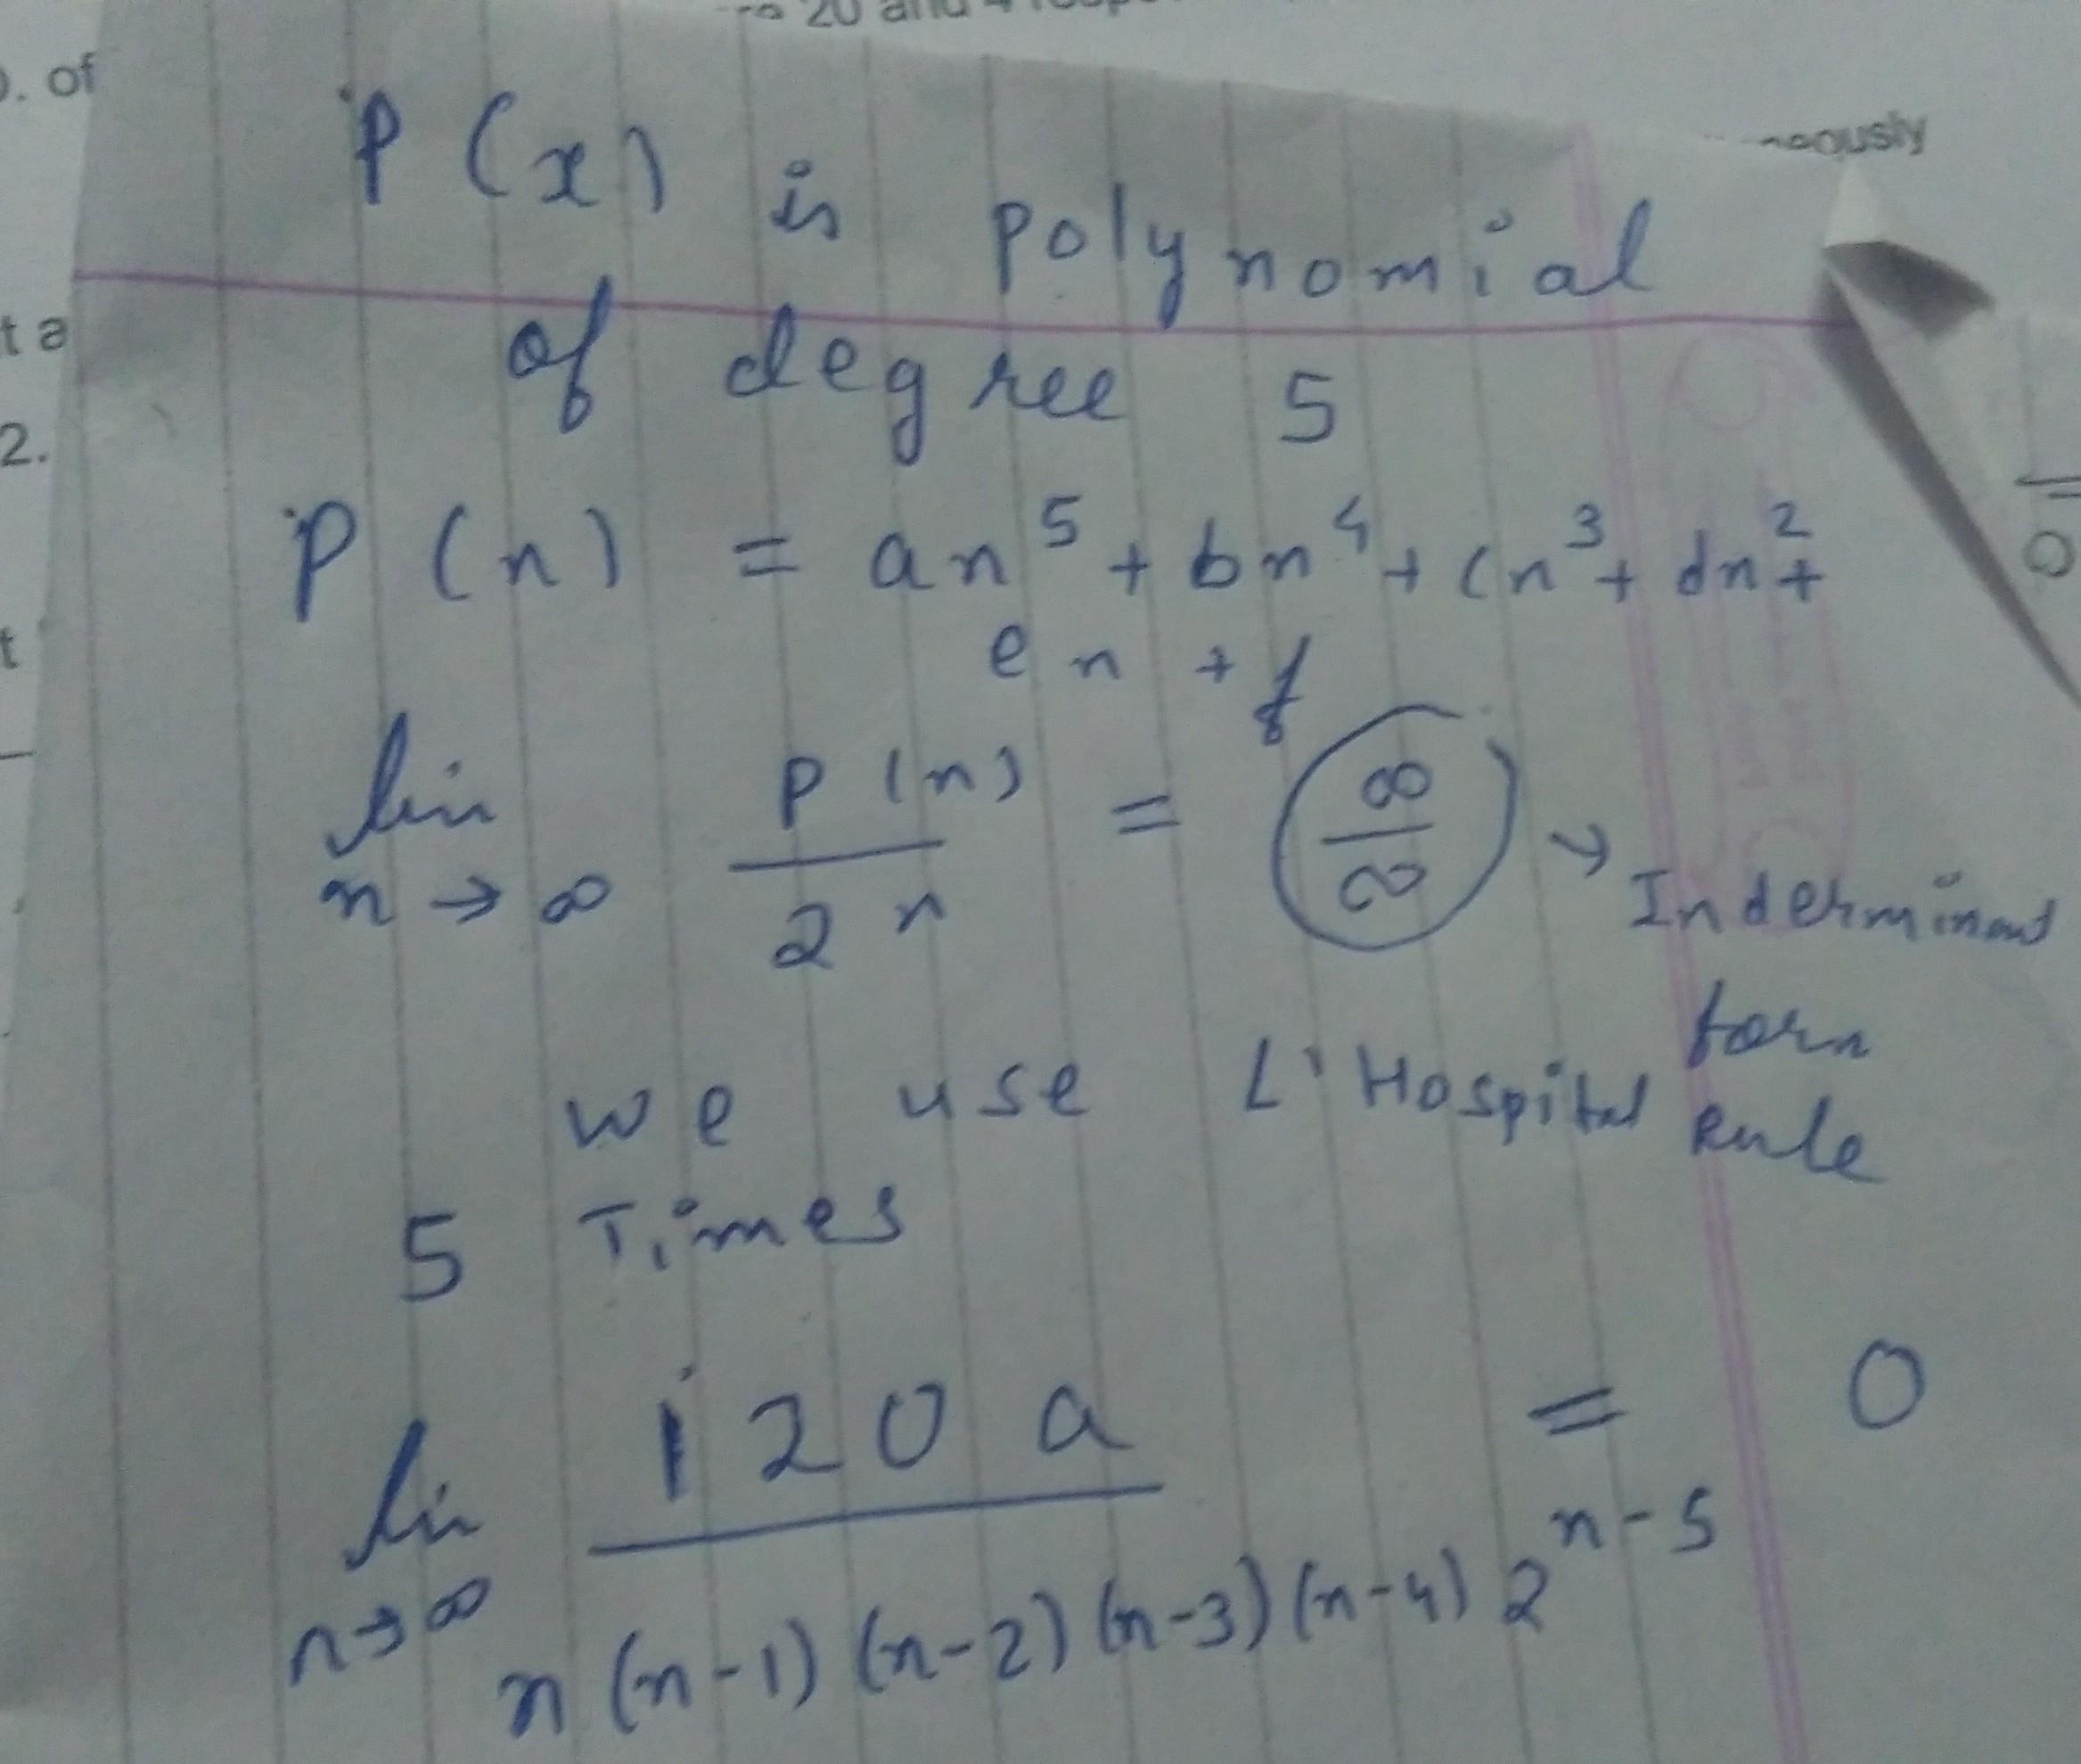 20 and 4
. of
neously
P(x) is polynomial
of degree 5
t a
2.
P(n) = an⁵ + bn⁴ + cn³ + dn² +
t
en + f
lim n→∞ P(n)/2ⁿ = ∞/∞ → Inderminant
form
we use L'Hospital Rule
5 Times
lim n→∞ 120a / n(n-1)(n-2)(n-3)(n-4) 2ⁿ⁻⁵ = 0